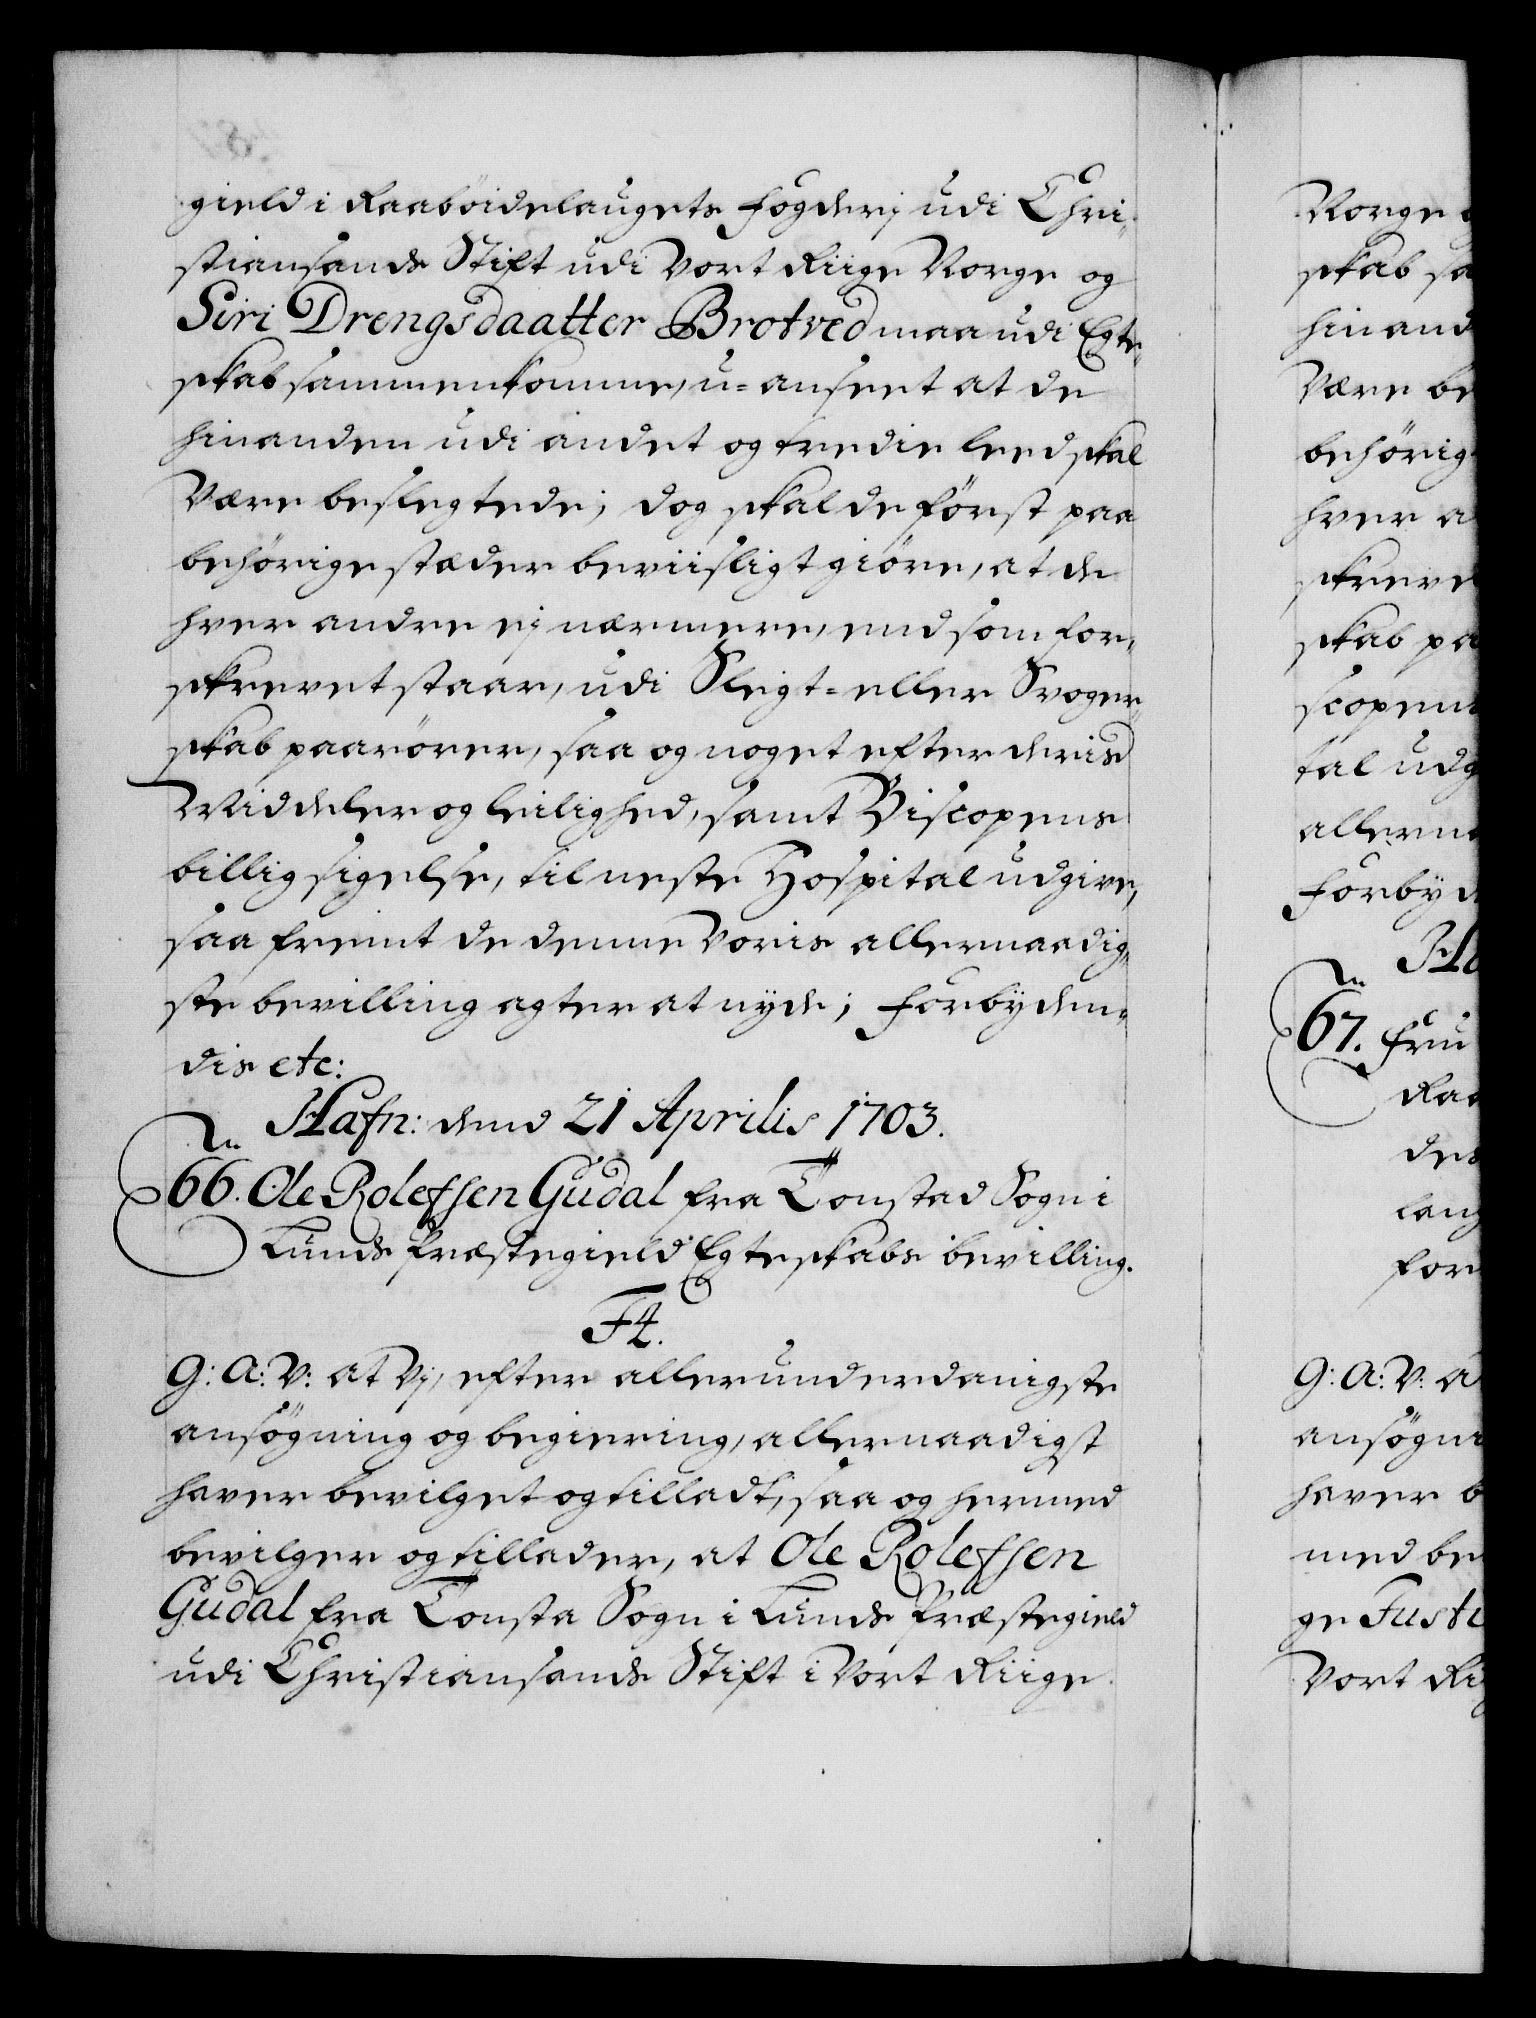 gield i Raaböidelaugets fogderj udi Chri-
stiansands Stift udi Vort Riige Norge og
Siri Drengsdaatter Brotved maa udi Egte-
skab sammenkomme, u-anseet at de
hinanden udi andet og tredie leed skal
Være beslegtede; dog skal de först paa
behörige stæder beviisligt giöre, at de
hver andre ej nærmere, end som for-
skrevet staar, udi Slegt- eller Svoger-
skab paarörer, saa og noget efter deris
Middeler og leilighed, samt Biscopens
billig sigelse, til neste Hospital udgive,
saa fremt de denne Voris allernaadig-
ste bevilling agter at nyde; Forbyden-
dis etc:
Hafn: dend 21 Aprilis 1703.
66. Ole Rolefsen Gudal fra Tonstad Sogn i
Lunds Præstegield Egteskabs bevilling.
F4.
G: A: V: at Vj, efter allerunderdanigste
ansögning og begiering, allernaadigst
haver bevilget og tilladt, saa og hermed
bevilger og tillader, at Ole Rolefsen
Gudal fra Tonsta Sogn i Lunds Præstegield
udi Christiansands Stift i Vort Riige
Norge
skab sa
hinand
Være be
behörig
hver a
skreve
skab pa
scopens
tal udg
allerna
Forbyd
Ha
67. Fru
Raa
des
laug
for
G: A: V: a
ansögni
haver b
med be
ge Justi
Vort Ri